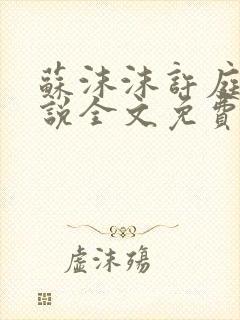 蘇沫沫許庭
說全文免費
虛沫殤